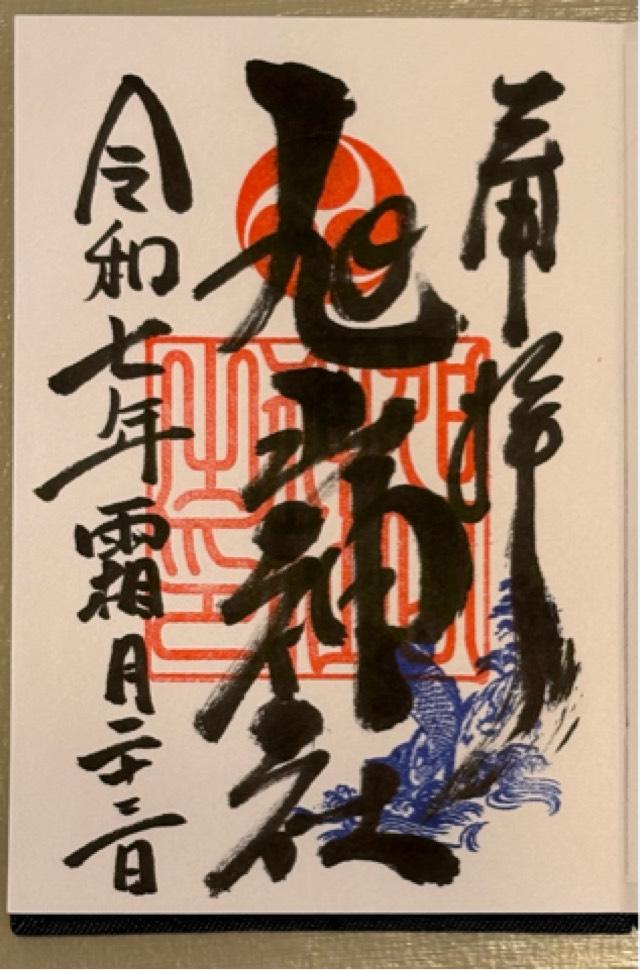 奉拝
旭神社
令和七年霜月二十三日